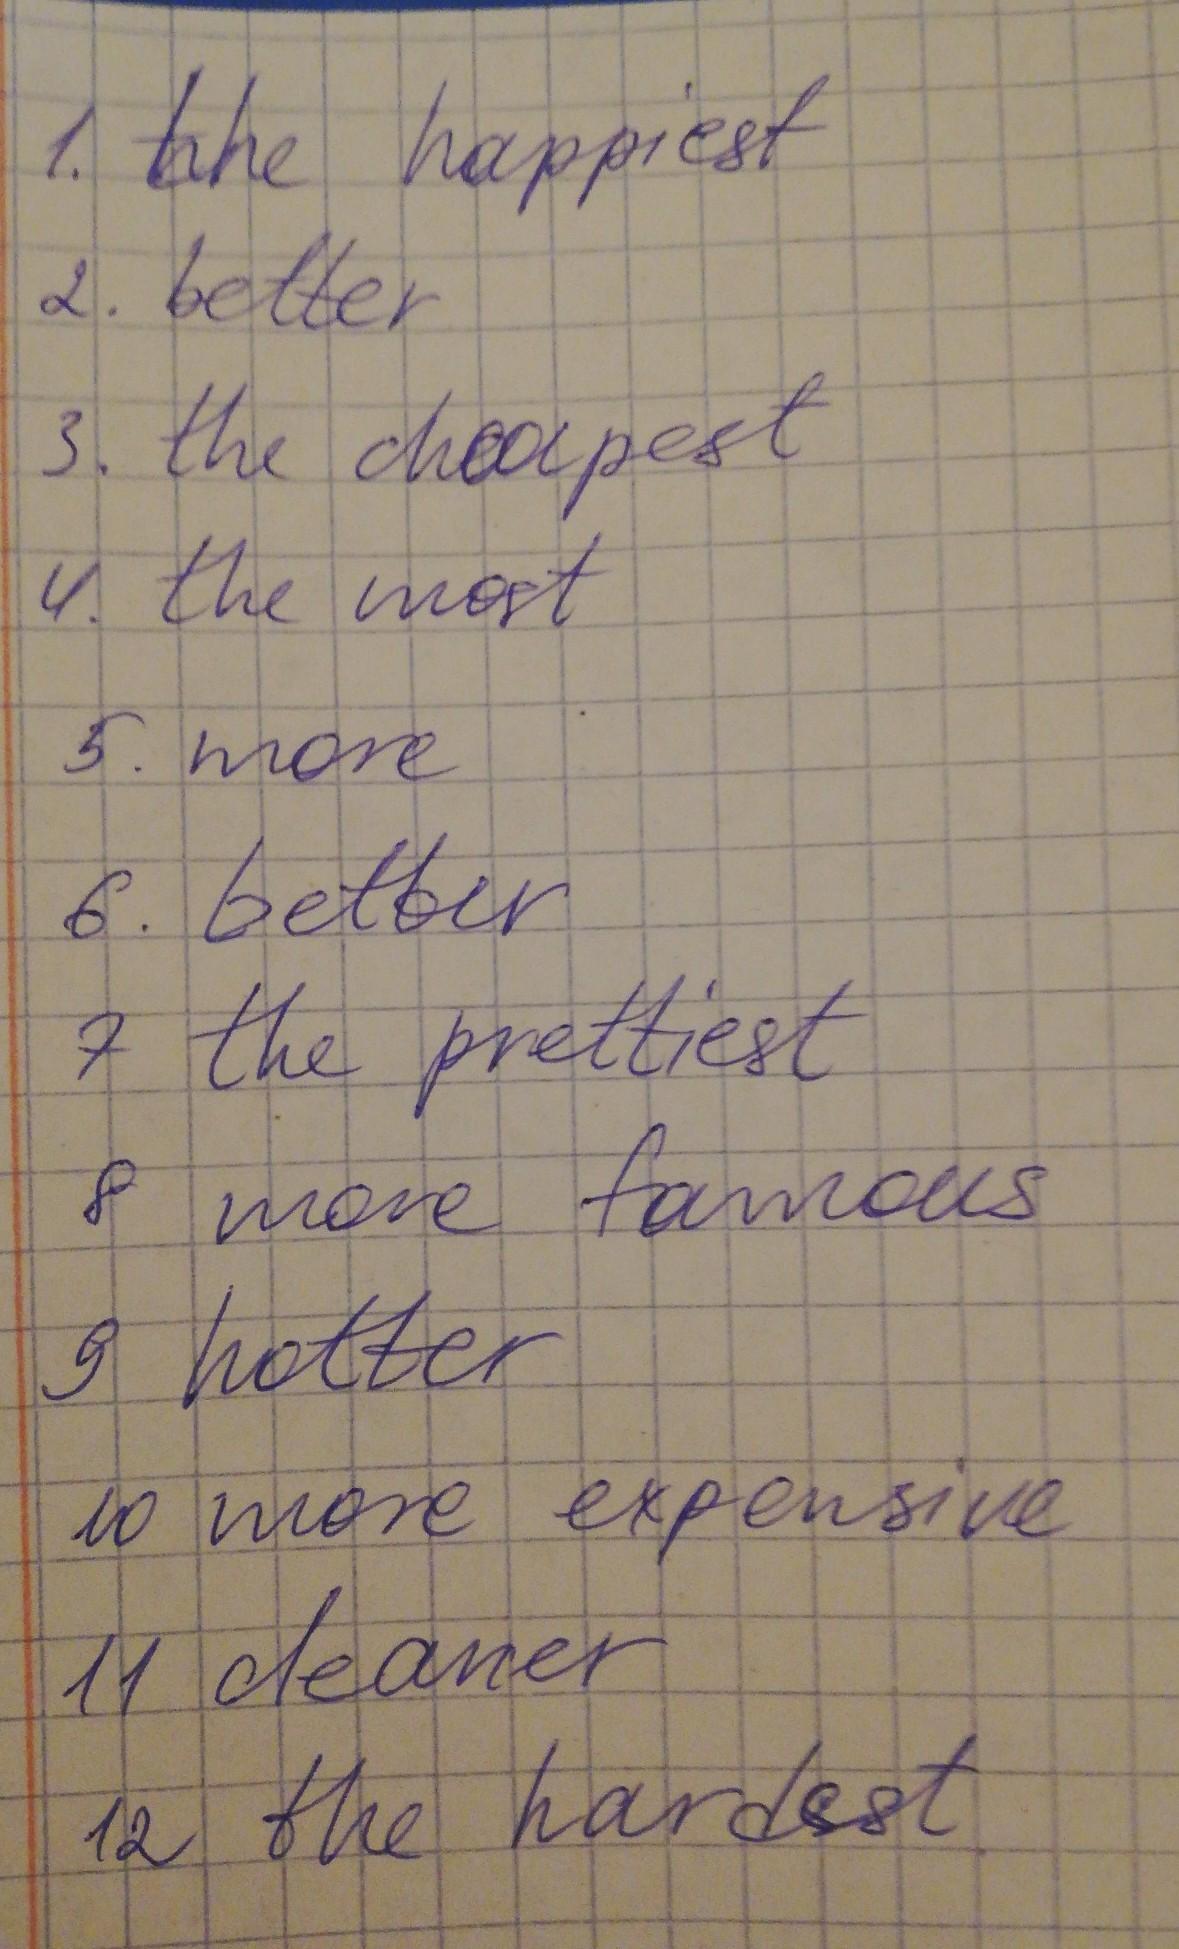 1. the happiest
2. better
3. the cheapest
4. the most
5. more
6. better
7 the prettiest
8 more famous
9 hotter
10 more expensive
11 cleaner
12 the hardest